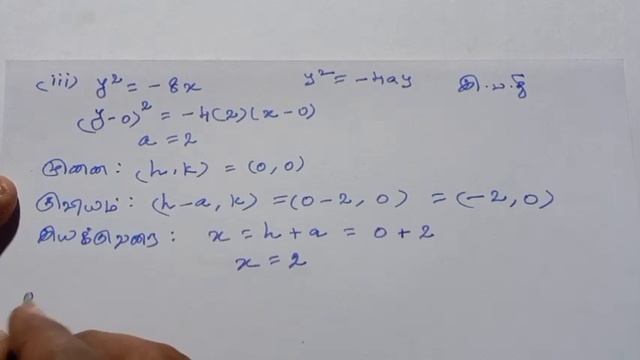 (iii) y² = -8x y² = -4ay இ.வ.தி
(y-0)² = -4(2)(x-0)
a = 2
முனை: (h, k) = (0, 0)
குவியம்: (h-a, k) = (0-2, 0) = (-2, 0)
இயக்குவரை: x = h + a = 0 + 2
x = 2